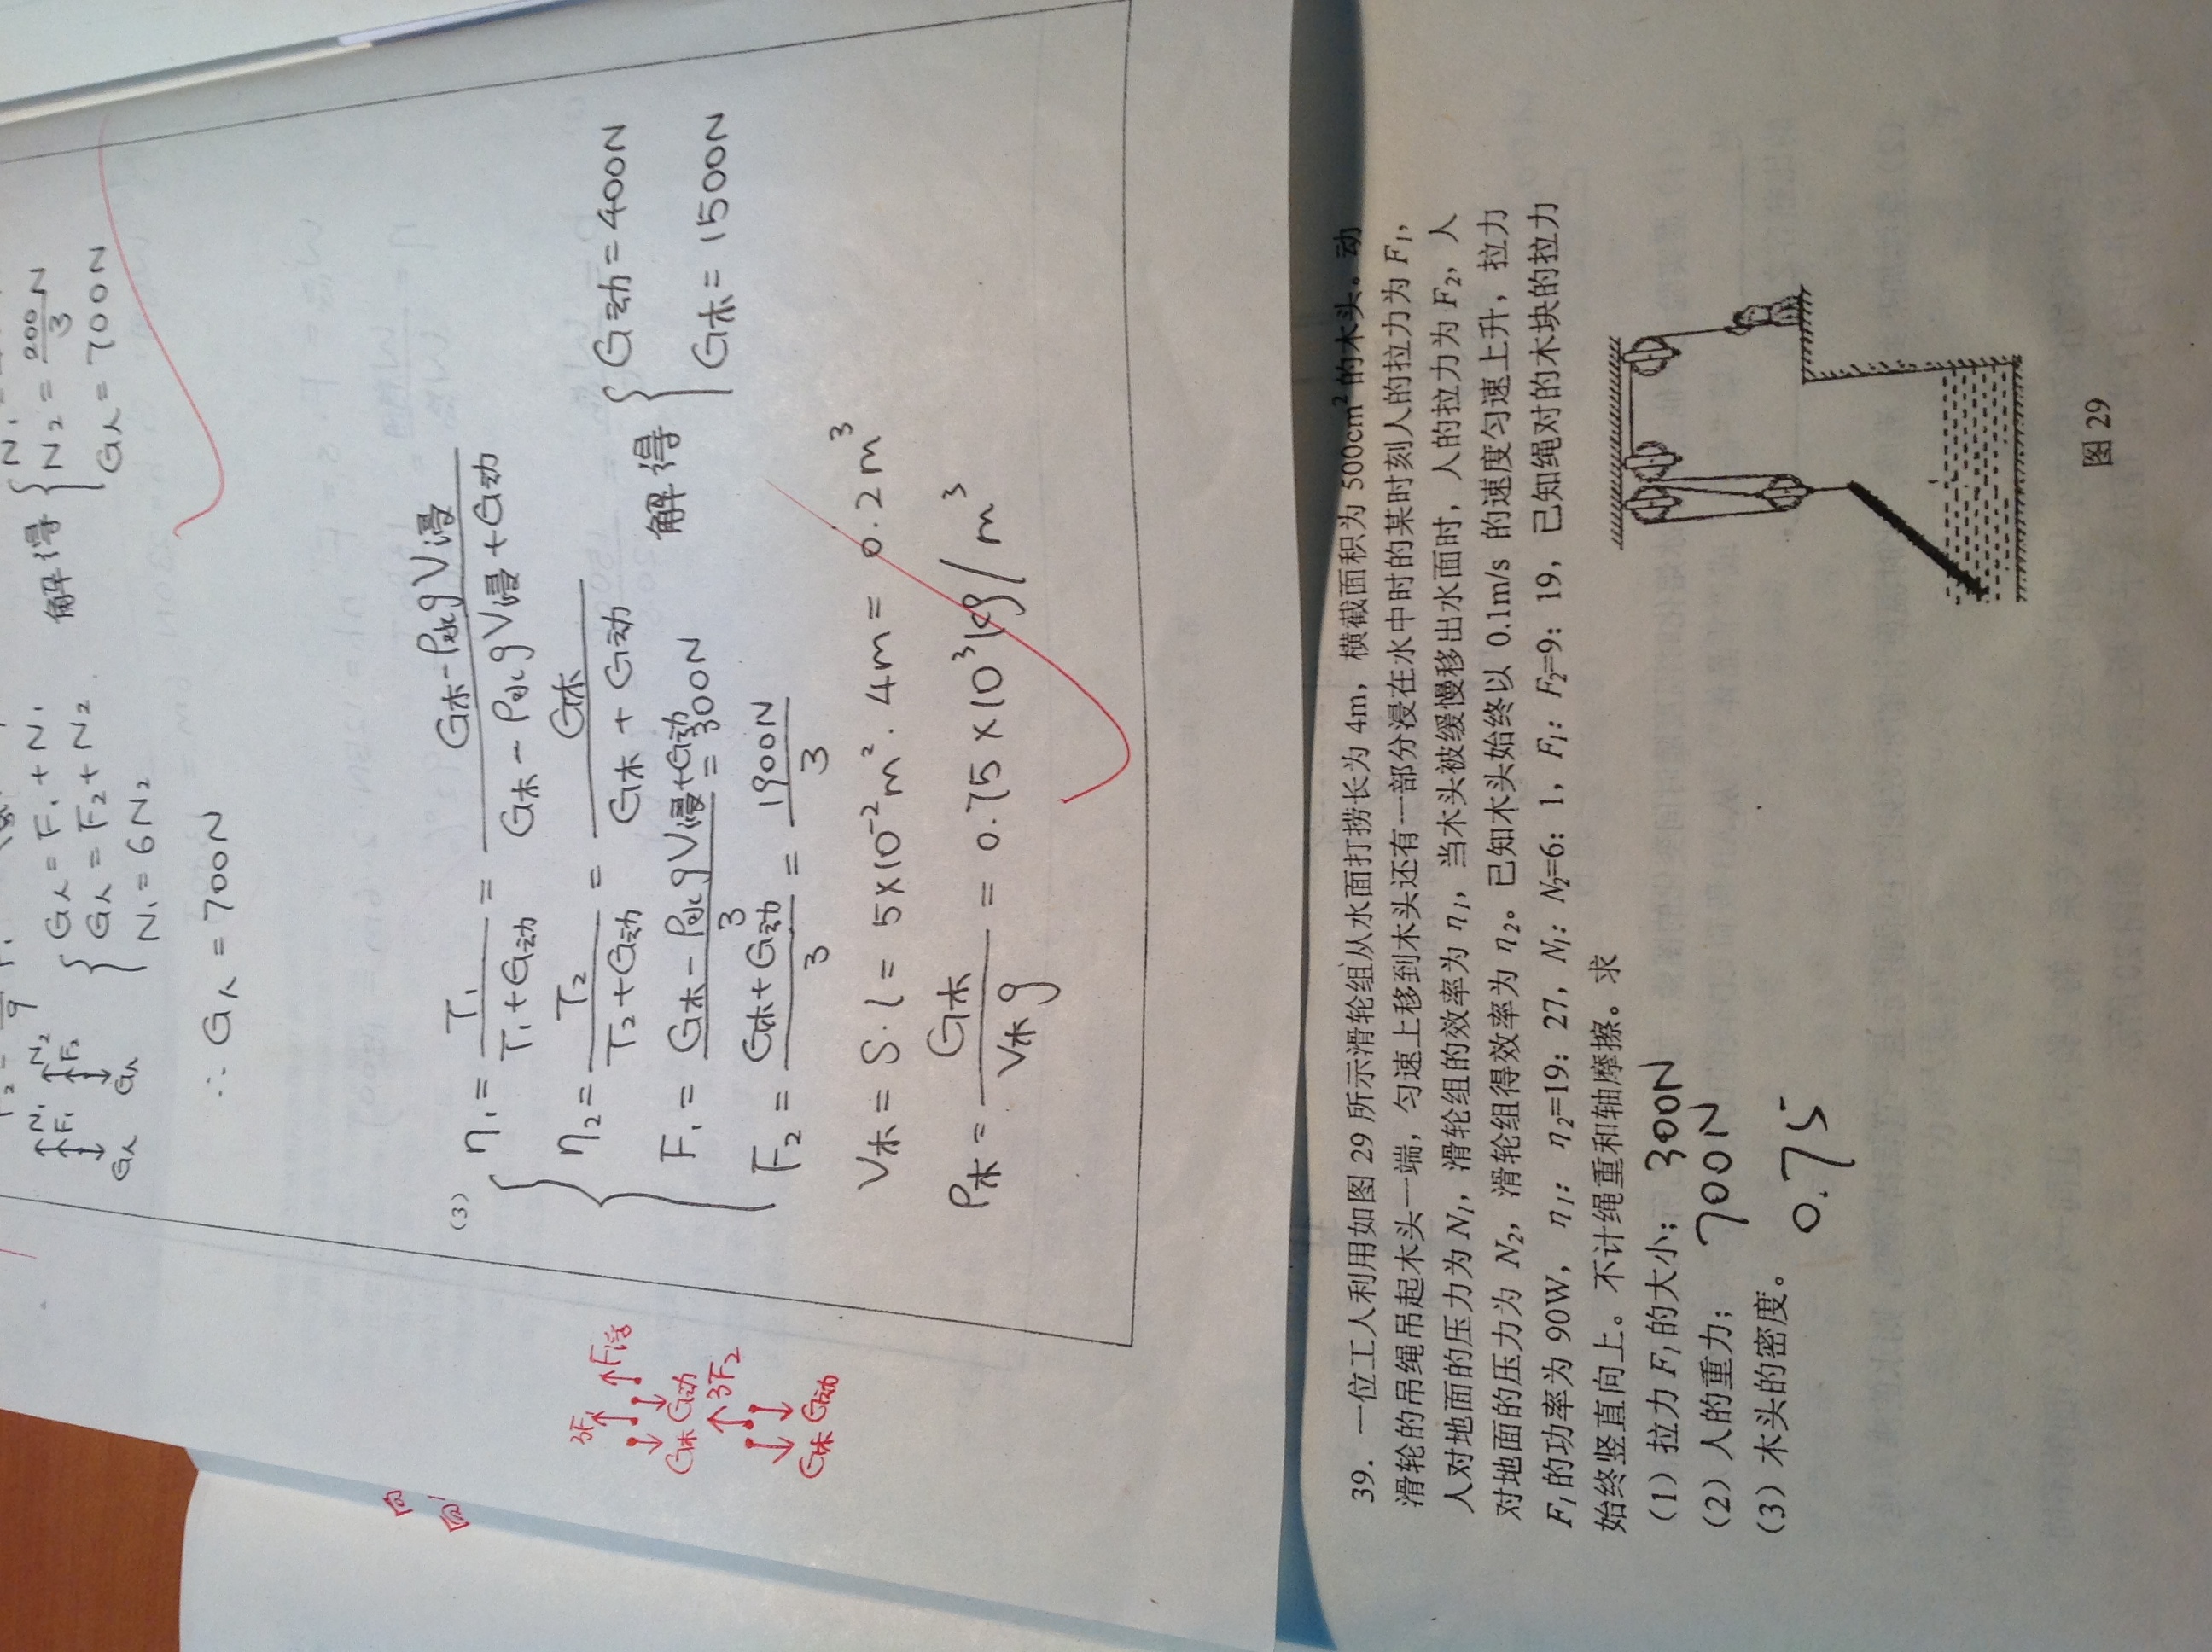 N₁ N₂
F₁ F₂
G人 G人
G人 = F₁ + N₁
G人 = F₂ + N₂
N₁ = 6N₂
解得
N₂ = 200/3 N
G人 = 700N
∴ G人 = 700N
向
向
(3) η₁ = T₁/(T₁+G动) = (G木-ρ水gV浸)/(G木-ρ水gV浸+G动)
η₂ = T₂/(T₂+G动) = G木/(G木+G动)
F₁ = (G木-ρ水gV浸+G动)/3 = 300N
F₂ = (G木+G动)/3 = 1900N/3
解得
G动 = 400N
G木 = 1500N
3F₁ F浮
G木 G动
3F₂
G木 G动
V木 = S·l = 5×10⁻²m²·4m = 0.2m³
ρ木 = G木/(V木g) = 0.75×10³kg/m³
39. 一位工人利用如图 29 所示滑轮组从水面打捞长为 4m，横截面积为 500cm²的木头。动
滑轮的吊绳吊起木头一端，匀速上移到木头还有一部分浸在水中时的某时刻人的拉力为 F₁，
人对地面的压力为 N₁，滑轮组的效率为 η₁，当木头被缓慢移出水面时，人的拉力为 F₂，人
对地面的压力为 N₂，滑轮组得效率为 η₂。已知木头始终以 0.1m/s 的速度匀速上升，拉力
F₁的功率为 90W， η₁： η₂=19：27，N₁：N₂=6：1，F₁：F₂=9：19，已知绳对的木块的拉力
始终竖直向上。不计绳重和轴摩擦。求
（1）拉力 F₁的大小； 300N
（2）人的重力； 700N
（3）木头的密度。
0.75
图 29